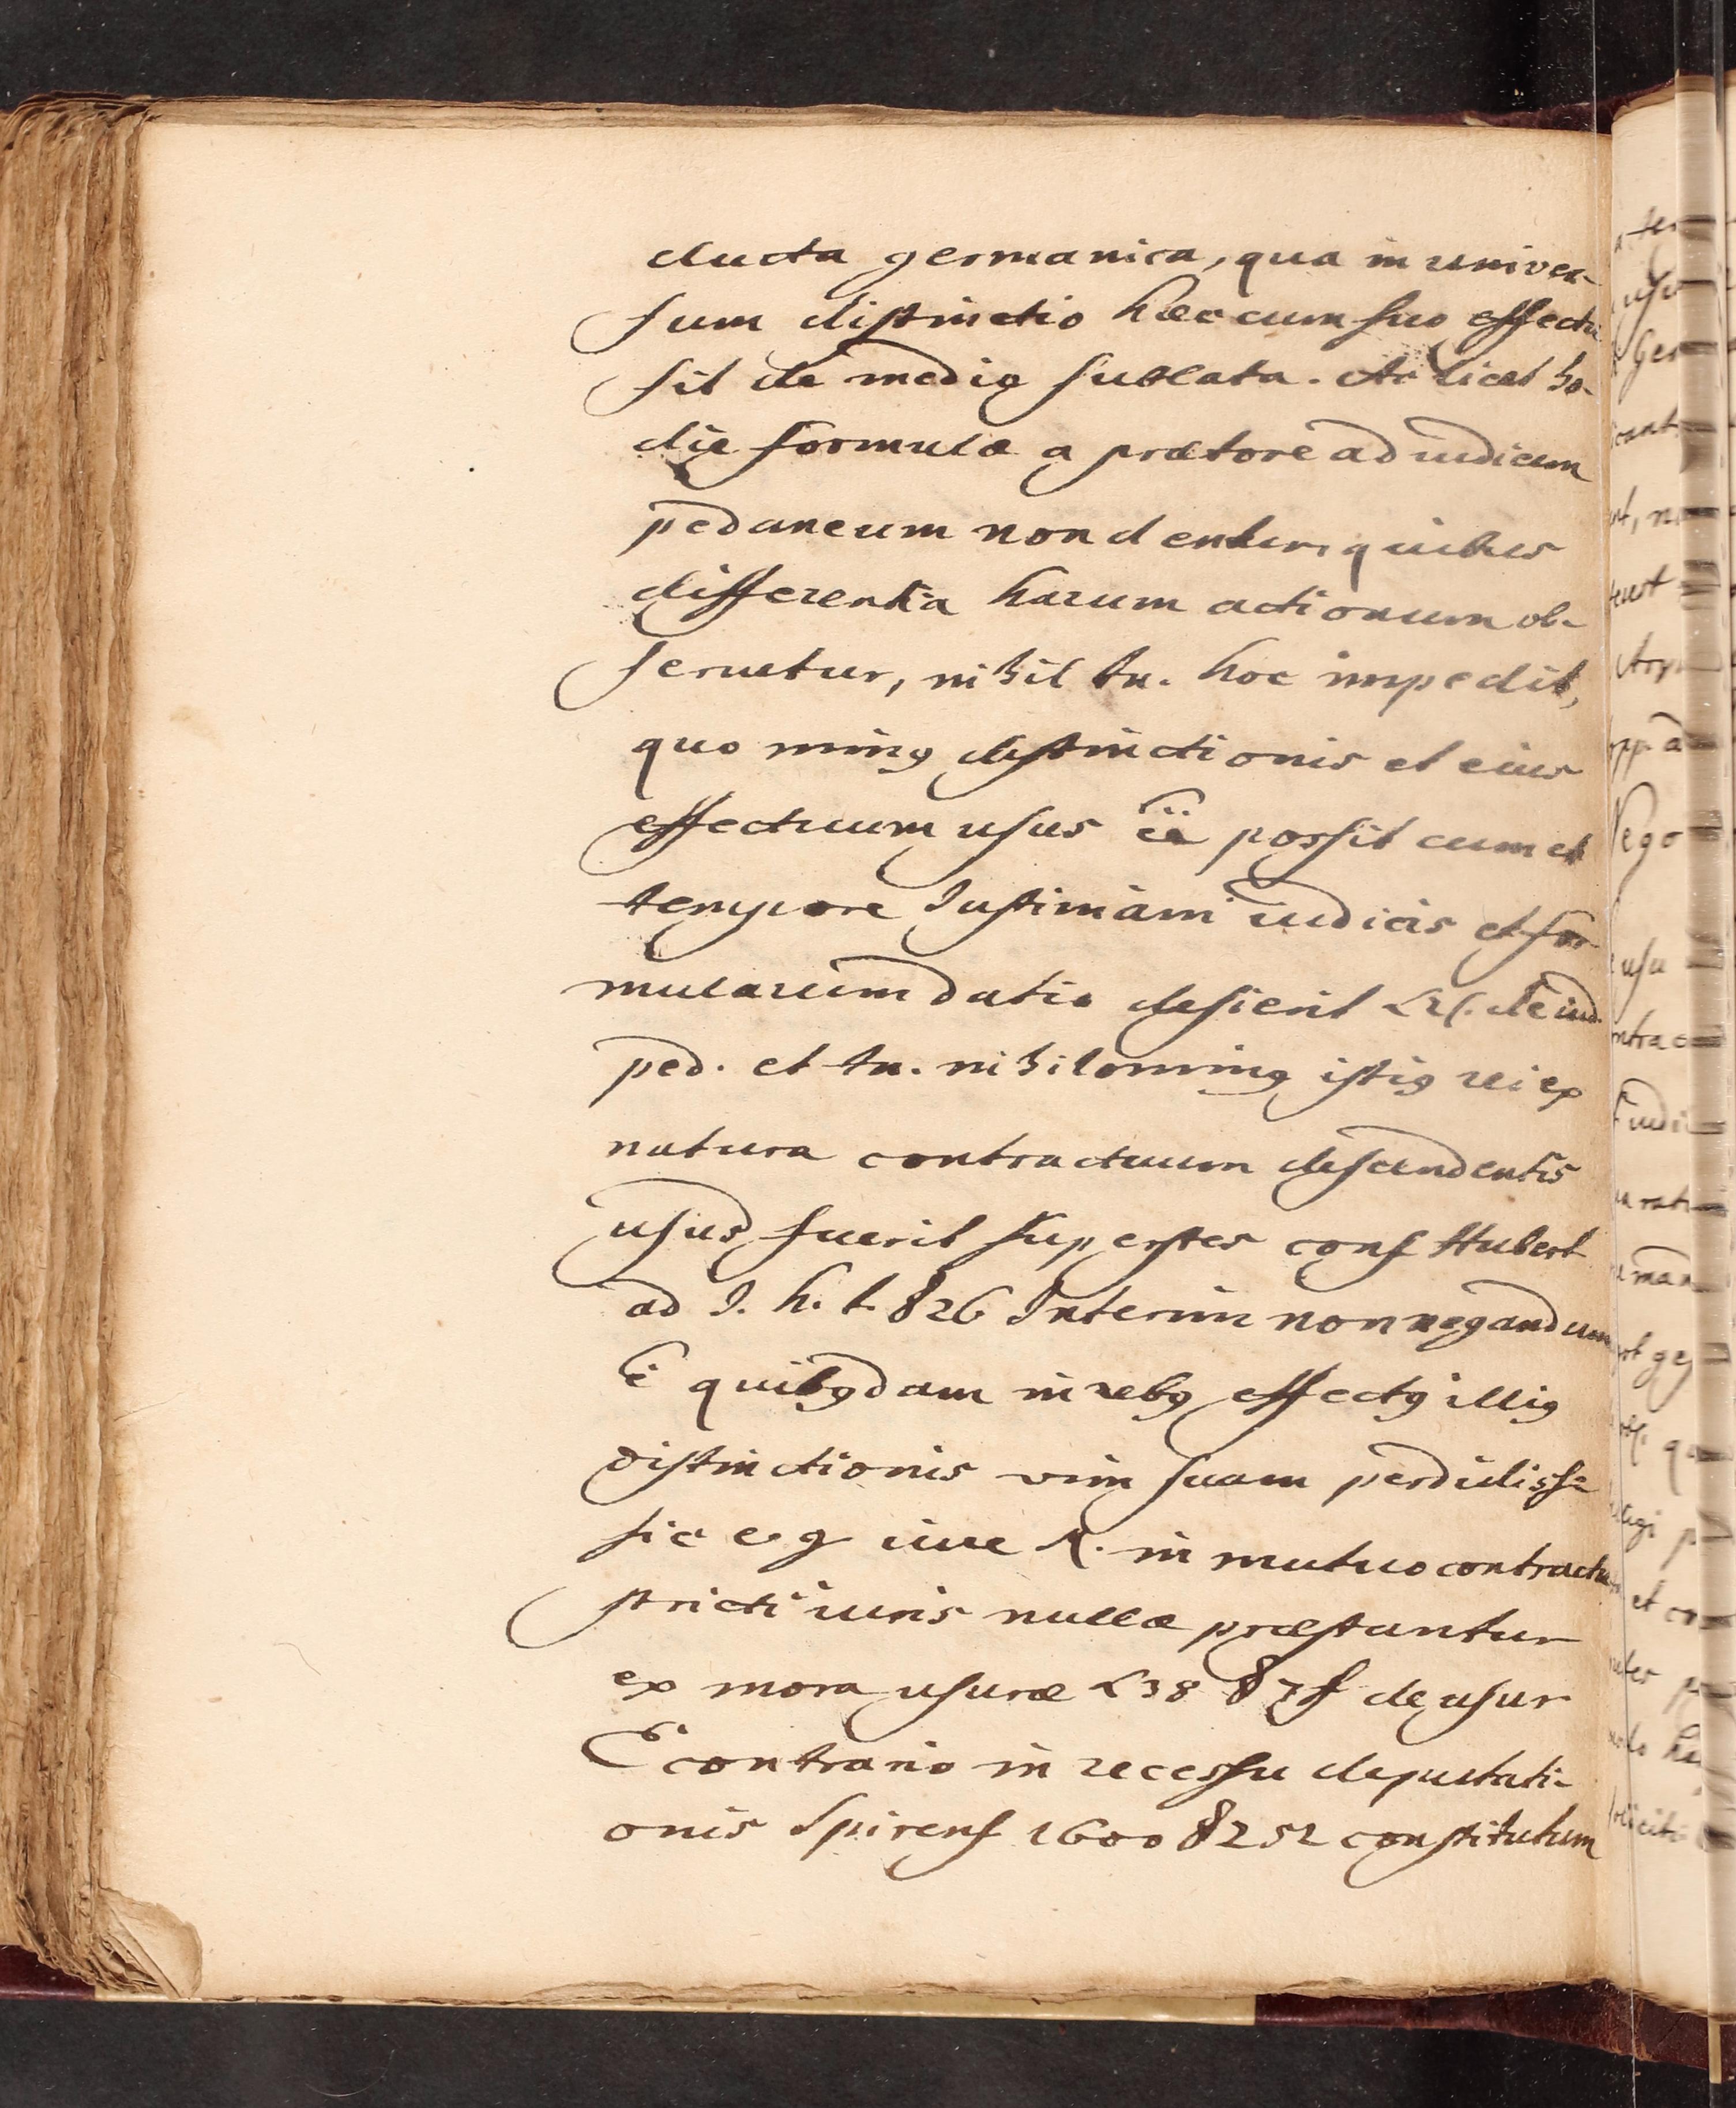 ducta germanica, qua in univer-
sum distinctio hæc cum suo effectu
sit de medio sublata. Ac licet ho-
die formulæ a prætore ad iudicem
pedaneum non dentur, quibus
differentia harum actionum ob-
servetur, nihil tn. hoc impedit,
quo minꝰ distinctionis et eius
effectuum usus ēē possit cum et
tempore Justiniani iudicis et for-
mularum datio desierit L 2 C. de iud.
ped. et tn. nihilominꝰ istiꝰ rei ex
natura contractuum descendentis
usus fuerit superstes conf Hubert
ad J. h. t. § 26 Interim non negandum
ē quibꝰdam in rebꝰ effectꝰ illiꝰ
distinctionis vim suam perdidisse
sic e. g iure R. in mutuo contractu
stricti iuris nullæ præstantur
ex mora usuræ L 38 § 7 ff de usur
E contrario in recessu deputati-
onis Spirens 1600 § 252 constitutum